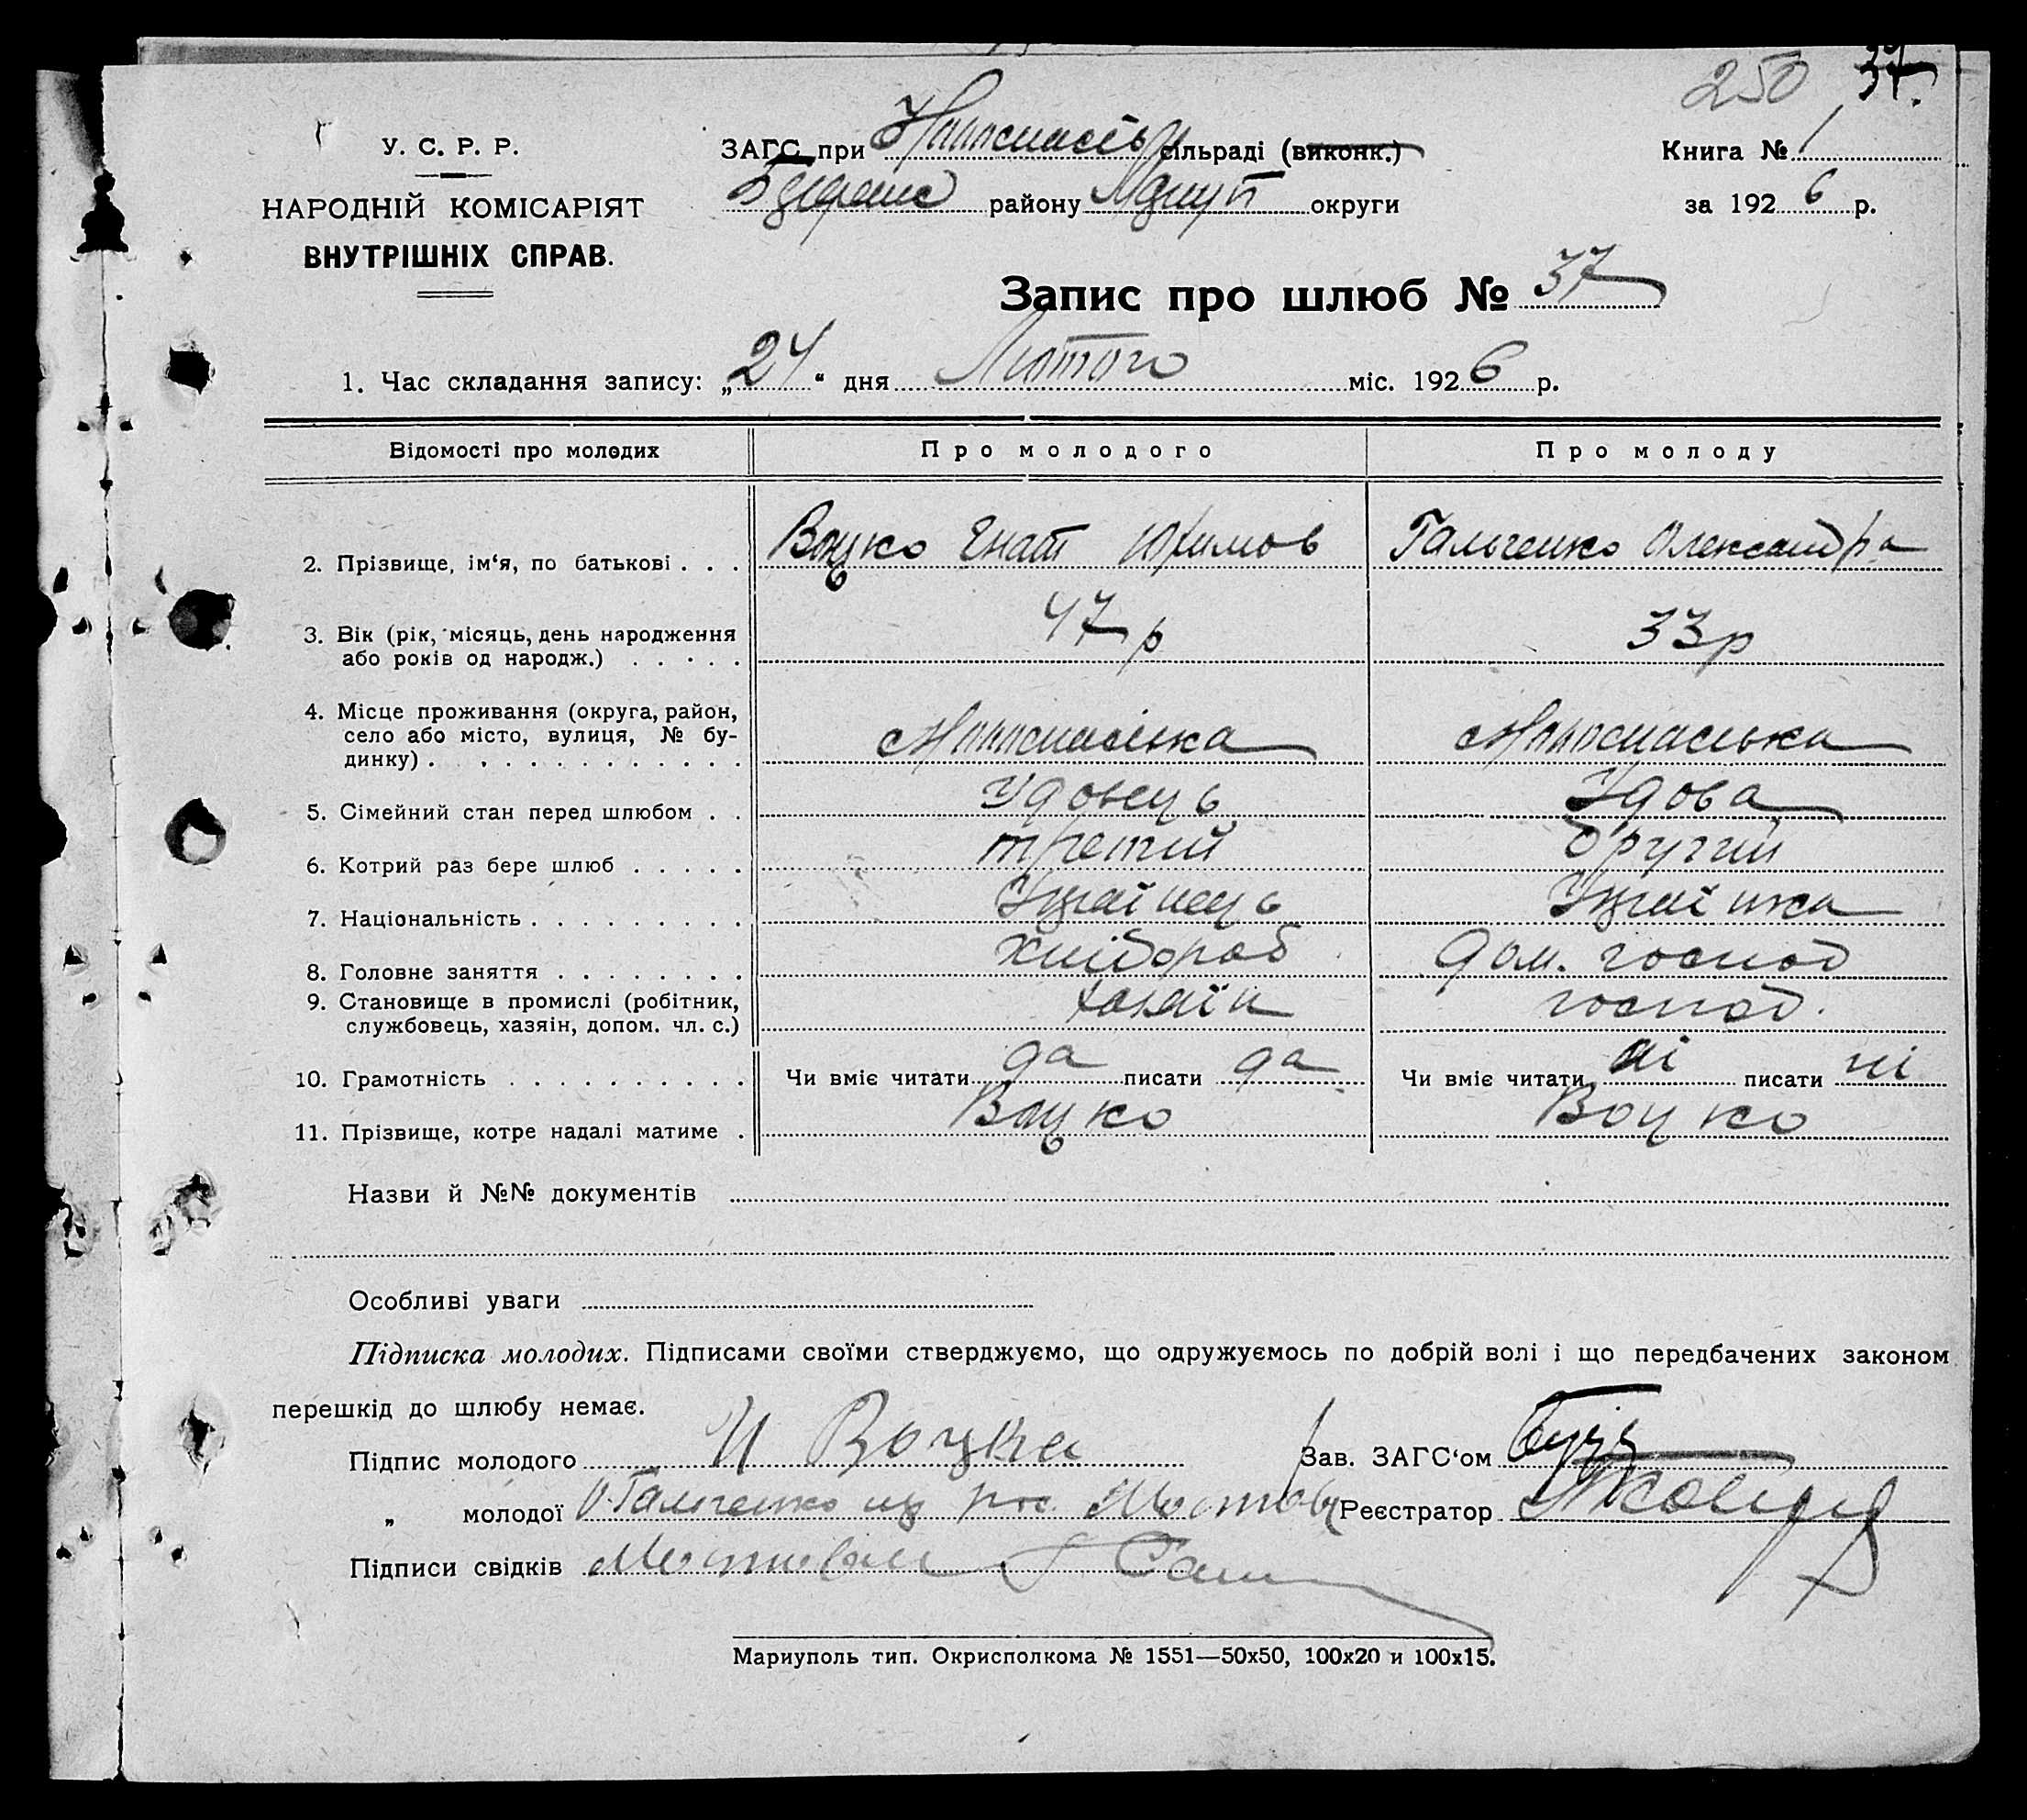 250 37.
У. С. Р. Р.
НАРОДНІЙ КОМІСАРІЯТ
ВНУТРІШНІХ СПРАВ.
ЗАГС при сільраді (виконк.)
району Маріуп округи
Книга № 1
за 1926 р.
Запис про шлюб № 37
1. Час складання запису: „24“ дня Лютого міс. 1926 р.
Відомості про молодих Про молодого Про молоду
2. Прізвище, ім‘я, по батькові . . . Воцко Гнат Юхимов Гальченко Олександра
3. Вік (рік, місяць, день народження
або років од народж.) . . . . . 47 р 33 р
4. Місце проживання (округа, район,
село або місто, вулиця, № бу-
динку) . . . . . . . . . . . .
5. Сімейний стан перед шлюбом . . Удовець Удова
6. Котрий раз бере шлюб . . . . . третий другий
7. Національність . . . . . . . . . Украінець Украінка
8. Головне заняття . . . . . . . . хлібороб дом. господ
9. Становище в промислі (робітник,
службовець, хазяін, допом. чл. с.) хазяїн господ.
10. Грамотність . . . . . . . . . . Чи вміє читати да писати да Чи вміє читати ні писати ні
11. Прізвище, котре надалі матиме . Воцко Воцко
Назви й №№ документів
Особливі уваги
Підписка молодих. Підписами своїми стверджуємо, що одружуємось по добрій волі і що передбачених законом
перешкід до шлюбу немає.
Підпис молодого И Воцка Зав. ЗАГС‘ом
„ молодої О. Гальченко Реєстратор
Підписи свідків
Мариуполь тип. Окрисполкома № 1551—50x50, 100x20 и 100x15.